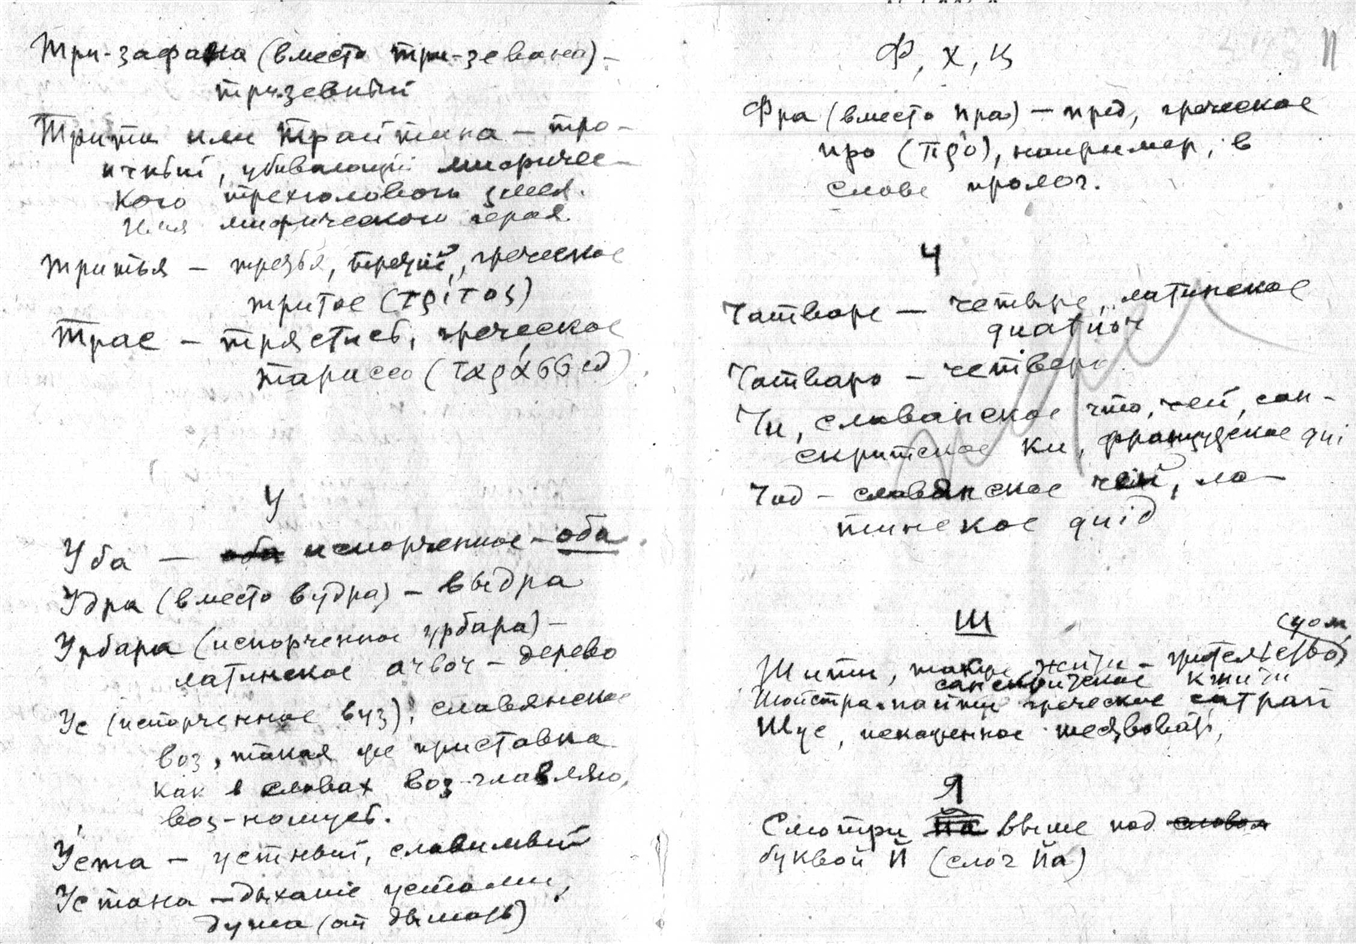 Три-зафана (вместо три-зевана) –
тризевный
Трита или Трайтана – тро-
ичный, убивающий мифичес-
кого трехголового змея.
Имя мифического героя.
тритья – третья, третий, греческое
тритос (τρίτος)
Трас – трястись, греческое
тарассо (ταράσσω)
У
Уба – оба испорченное – оба.
Удра (вместо вудра) – выдра
Урбара (испорченное урбара) –
латинское – дерево
Ус (испорченное вуз), славянское
воз, такая же приставка
как в словах воз-главляю,
воз-номует.
Уста – устный, славимый
Устана – дыхание устами,
душа (от дышать)
Ф, Х, Ц
11
Фра (вместо пра) – пред, греческое
про (πρό), например, в
слове пролог.
Ч
Чатваре – четыре, латинское
quatuor
Чатваро – четверо
Чи, славянское что, чей, сан-
скритское ки, французское qui
Чид – славянское чей, ла-
тинское quid
Ш
Шити, также жити – жительство
санскритское кшити
греческое сатрап
Шус, искаженное шествовать,
Я
Смотри йа выше под словом
буквой Й (слог Йа)